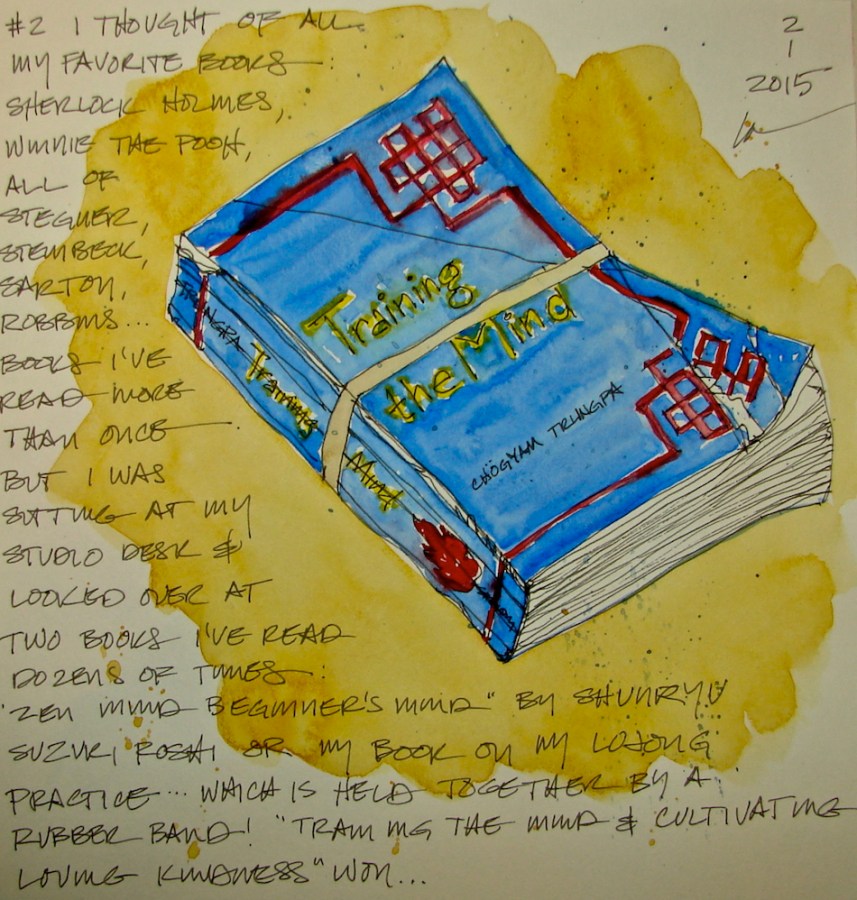 #2 I THOUGHT OF ALL
MY FAVORITE BOOKS:
SHERLOCK HOLMES,
WINNIE THE POOH,
ALL OF
STEGNER,
STEINBECK,
SARTON,
ROBBINS...
BOOKS I'VE
READ MORE
THAN ONCE
BUT I WAS
SITTING AT MY
STUDIO DESK &
LOOKED OVER AT
TWO BOOKS I'VE READ
DOZENS OF TIMES:
"ZEN MIND BEGINNER'S MIND" BY SHUNRYU
SUZUKI ROSHI OR MY BOOK ON MY LOJONG
PRACTICE... WHICH IS HELD TOGETHER BY A
RUBBER BAND! "TRAINING THE MIND & CULTIVATING
LOVING KINDNESS" WON...
2
1
2015
Training
the Mind
CHÖGYAM TRUNGPA
TRUNGPA Training
Mind